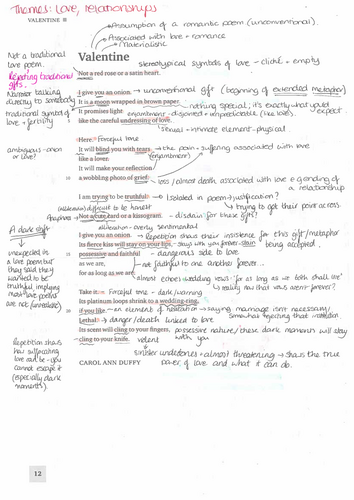 Themes: Love, relationships
VALENTINE 11
Assumption of a romantic poem (unconventional).
Associated with love + romance
Materialistic
Not a traditional
love poem.
Valentine
Stereotypical symbols of love - cliché + empty
Rejecting traditional
gifts.
Not a red rose or a satin heart.
Narrator talking
directly to somebody
I give you an onion.
unconventional gift (beginning of extended metaphor)
It is a moon wrapped in brown paper.
nothing special; it's exactly what you'd
expect.
traditional symbol of
love + fertility
It promises light
like the careful undressing of love.
sensual + intimate element - physical
Here. Forceful tone
ambiguous - onion
or love?
It will blind you with tears
the pain + suffering associated with love
like a lover.
It will make your reflection
a wobbling photo of grief.
loss / almost death associated with love + ending of
a relationship
I am trying to be truthful.
Isolated in poem → justification?
trying to get their point across.
difficult to be honest
Anaphora
Not a cute card or a kissogram.
disdain for these gifts?
alliteration - overly sentimental
A dark shift
I give you an onion.
Repetition shows their insistence for this gift/metaphor
being accepted.
Its fierce kiss will stay on your lips,
stays with you forever
unexpected in
a love poem but
they said they
wanted to be
truthful implying
most love poems
are not (unrealistic)
possessive and faithful
dangerous side to love
as we are,
are faithful to one another forever...
for as long as we are.
almost echoes wedding vows - 'for as long as we both shall live'
reality now that vows aren't forever?
Take it.
Forceful tone - dark/warning
Its platinum loops shrink to a wedding ring,
if you like.
an element of hesitation → saying marriage isn't necessary/
somewhat rejecting that institution.
Lethal.
danger/death linked to love
Its scent will cling to your fingers,
possessive nature/these dark moments will stay
with you
cling to your knife.
violent
Repetition shows
how suffocating
love can be - you
cannot escape it
(especially dark
moments).
sinister undertones + almost threatening → shows the true
power of love and what it can do.
CAROL ANN DUFFY
12